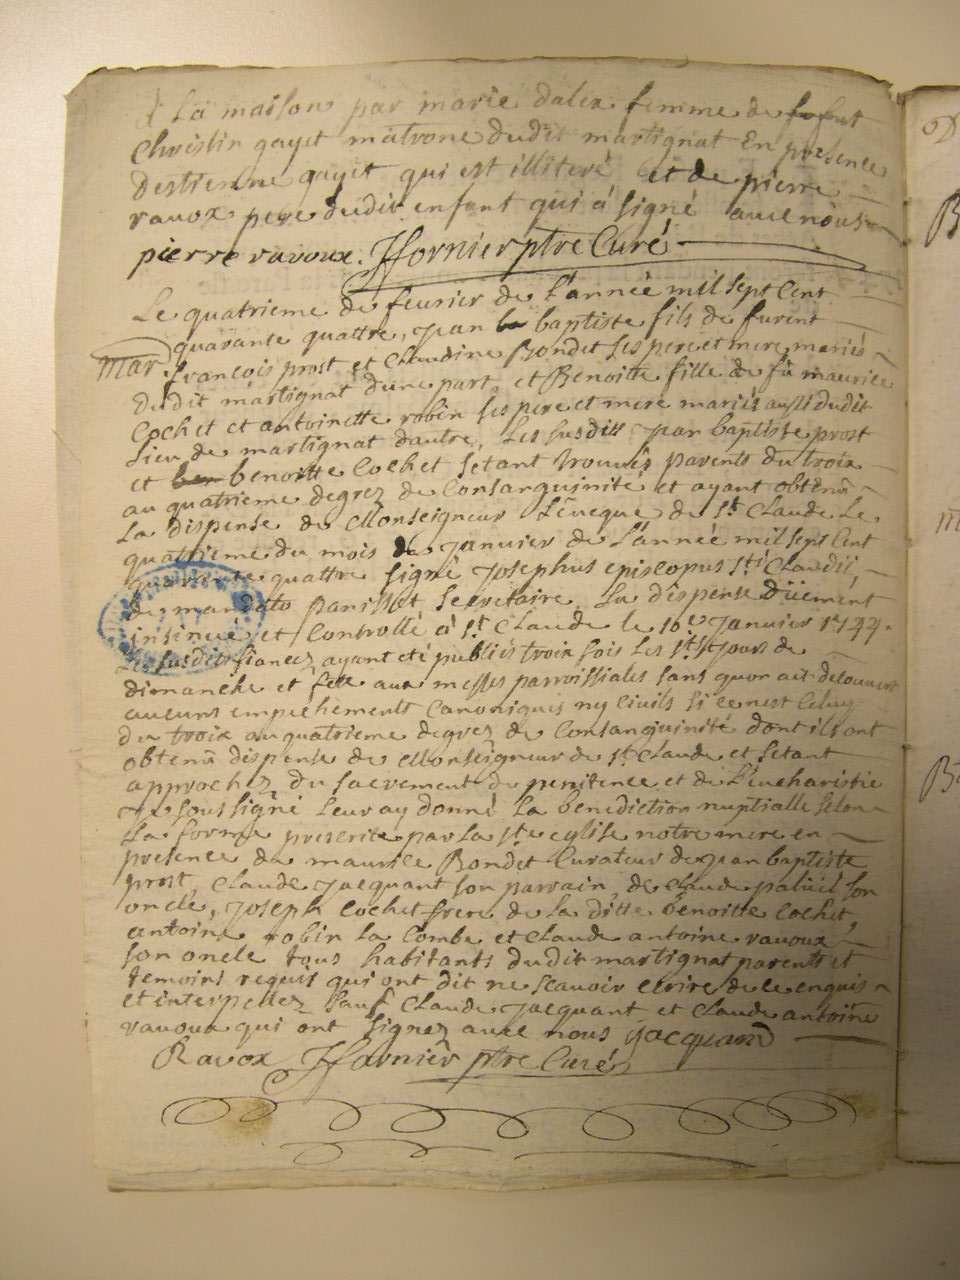 à La maison par marie dalex femme de
Christin gayet matrone dudit martignat En presence
destienne gayet qui est illiteré et de pierre
ravox pere dudit enfant qui à signé avec nous
pierre ravoux. JFornier ptre Curé
Le quatrieme de feurier de l'année mil sept Cent
quarante quattre, jean baptiste fils de furent
Mar. francois prost et Claudine Bondet ses pere et mere mariés
dudit martignat dune part, et Benoitte fille de fû maurice
Cochet et antoinette robin ses pere et mere mariés aussi dudit
Lieu de martignat dautre, Les susditt jean baptiste prost
et benoitte Cochet setant trouvés parents du troix
au quatrieme degrez de Consanguinité et ayant obtenû
La dispense de Monseigneur L'êveque de St Claude Le
quatrieme du mois de janvier de L'année mil sept Cent
quarante quattre signé josephus episcopus sti Claudii,
de mandato panisset secretaire La dispense Düement
insinué et Controllé à St Claude le 10e janvier 1744.
Les susdits fiancez ayant eté publiés trois fois Les jours de
dimanche et fete aux messes parroissiales sans quon ait decouvert
aucuns empechements Canoniques ny Civils si ce nest Celuy
du troix au quatrieme degrez de Consanguinité dont ils ont
obtenû dispense de Monseigneur de St Claude et setant
approchez du sacrement de penitence et de L'eucharistie
je soussigné Leur ay donné La benediction nuptialle selon
La forme prescrite par La ste eglise notre mere en
presence de maurice Bondet Curateur de jean baptiste
prost, Claude jacquant son parrain, de Claude son
oncle, joseph Cochet frere de La ditte benoitte Cochet,
antoine robin La Combe et Claude antoine ravoux
son oncle tous habitants dudit martignat parents et
temoins requis qui ont dit ne scavoir ecrire de ce enquis
et interpellez sauf Claude jacquant et Claude antoine
ravoux qui ont signez avec nous jacquand
Ravox JFornier ptre Curé